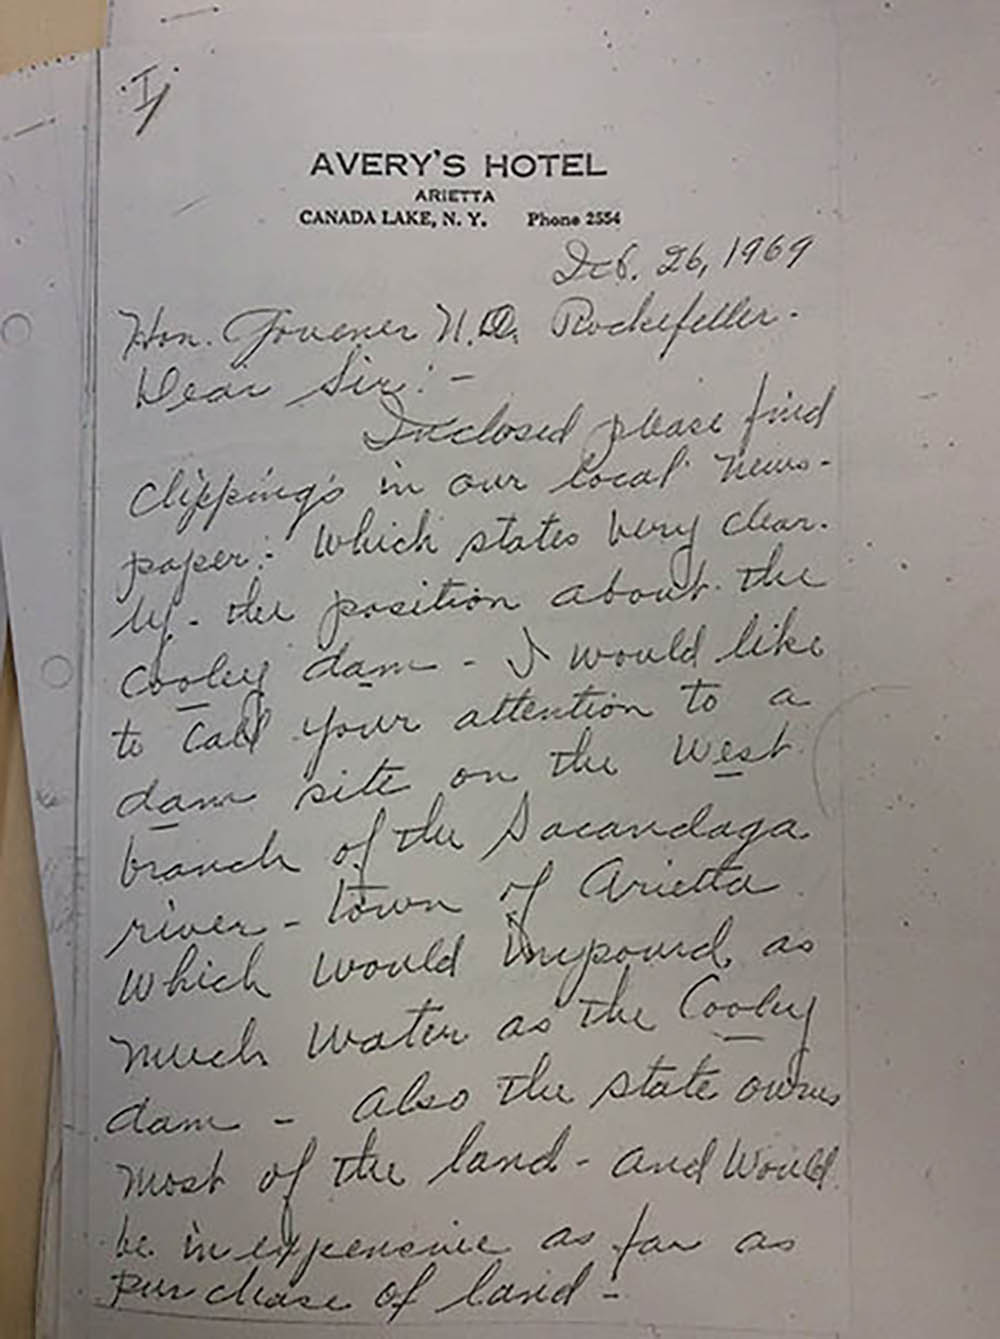 I,
AVERY'S HOTEL
ARIETTA
CANADA LAKE, N. Y. Phone 2554
26, 1969
Hon. Govener N.A. Rockefeller.
Dear Sir: -
Inclosed please find
Clipping's in our local news-
paper: which states very clear-
ly - the position about the
Cooley dam - I would like
to call your attention to a
dam site on the west
branch of the Sacandaga
river - town of Arietta
which would impound as
much water as the Cooley
dam - also the state owns
most of the land - and would
be inexpensive as far as
purchase of land -